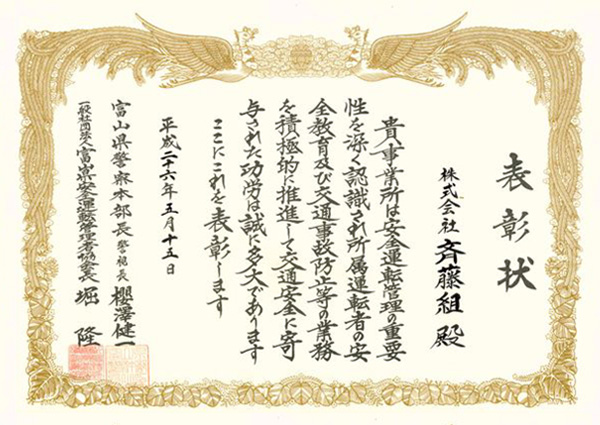 表彰状
株式会社 斉藤組 殿
貴事業所は安全運転管理の重要
性を深く認識され所属運転者の安
全教育及び交通事故防止等の業務
を積極的に推進して交通安全に寄
与された功労は誠に多大であります
ここにこれを表彰します
平成二十六年五月十五日
富山県警察本部長 警視長 櫻澤健一
一般社団法人富山県安全運転管理者協会会長 堀 隆